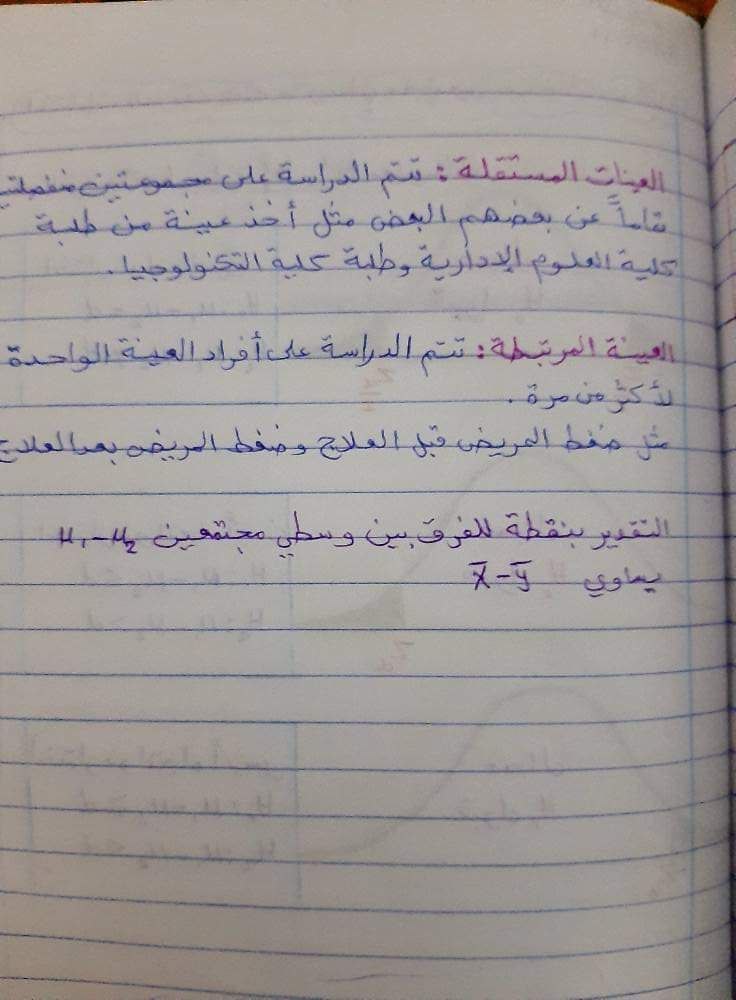 العينات المستقلة : تتم الدراسة على مجموعتين منفصلتين
تماماً عن بعضهم البعض مثل أخذ عينة من طلبة
كلية العلوم الإدارية وطلبة كلية التكنولوجيا.
العينة المرتبطة : تتم الدراسة على أفراد العينة الواحدة
لأكثر من مرة .
مثل ضغط المريض قبل العلاج وضغط المريض بعد العلاج
التقدير بنقطة للفرق بين وسطي مجتمعين μ₁-μ₂
يساوي x̄-ȳ